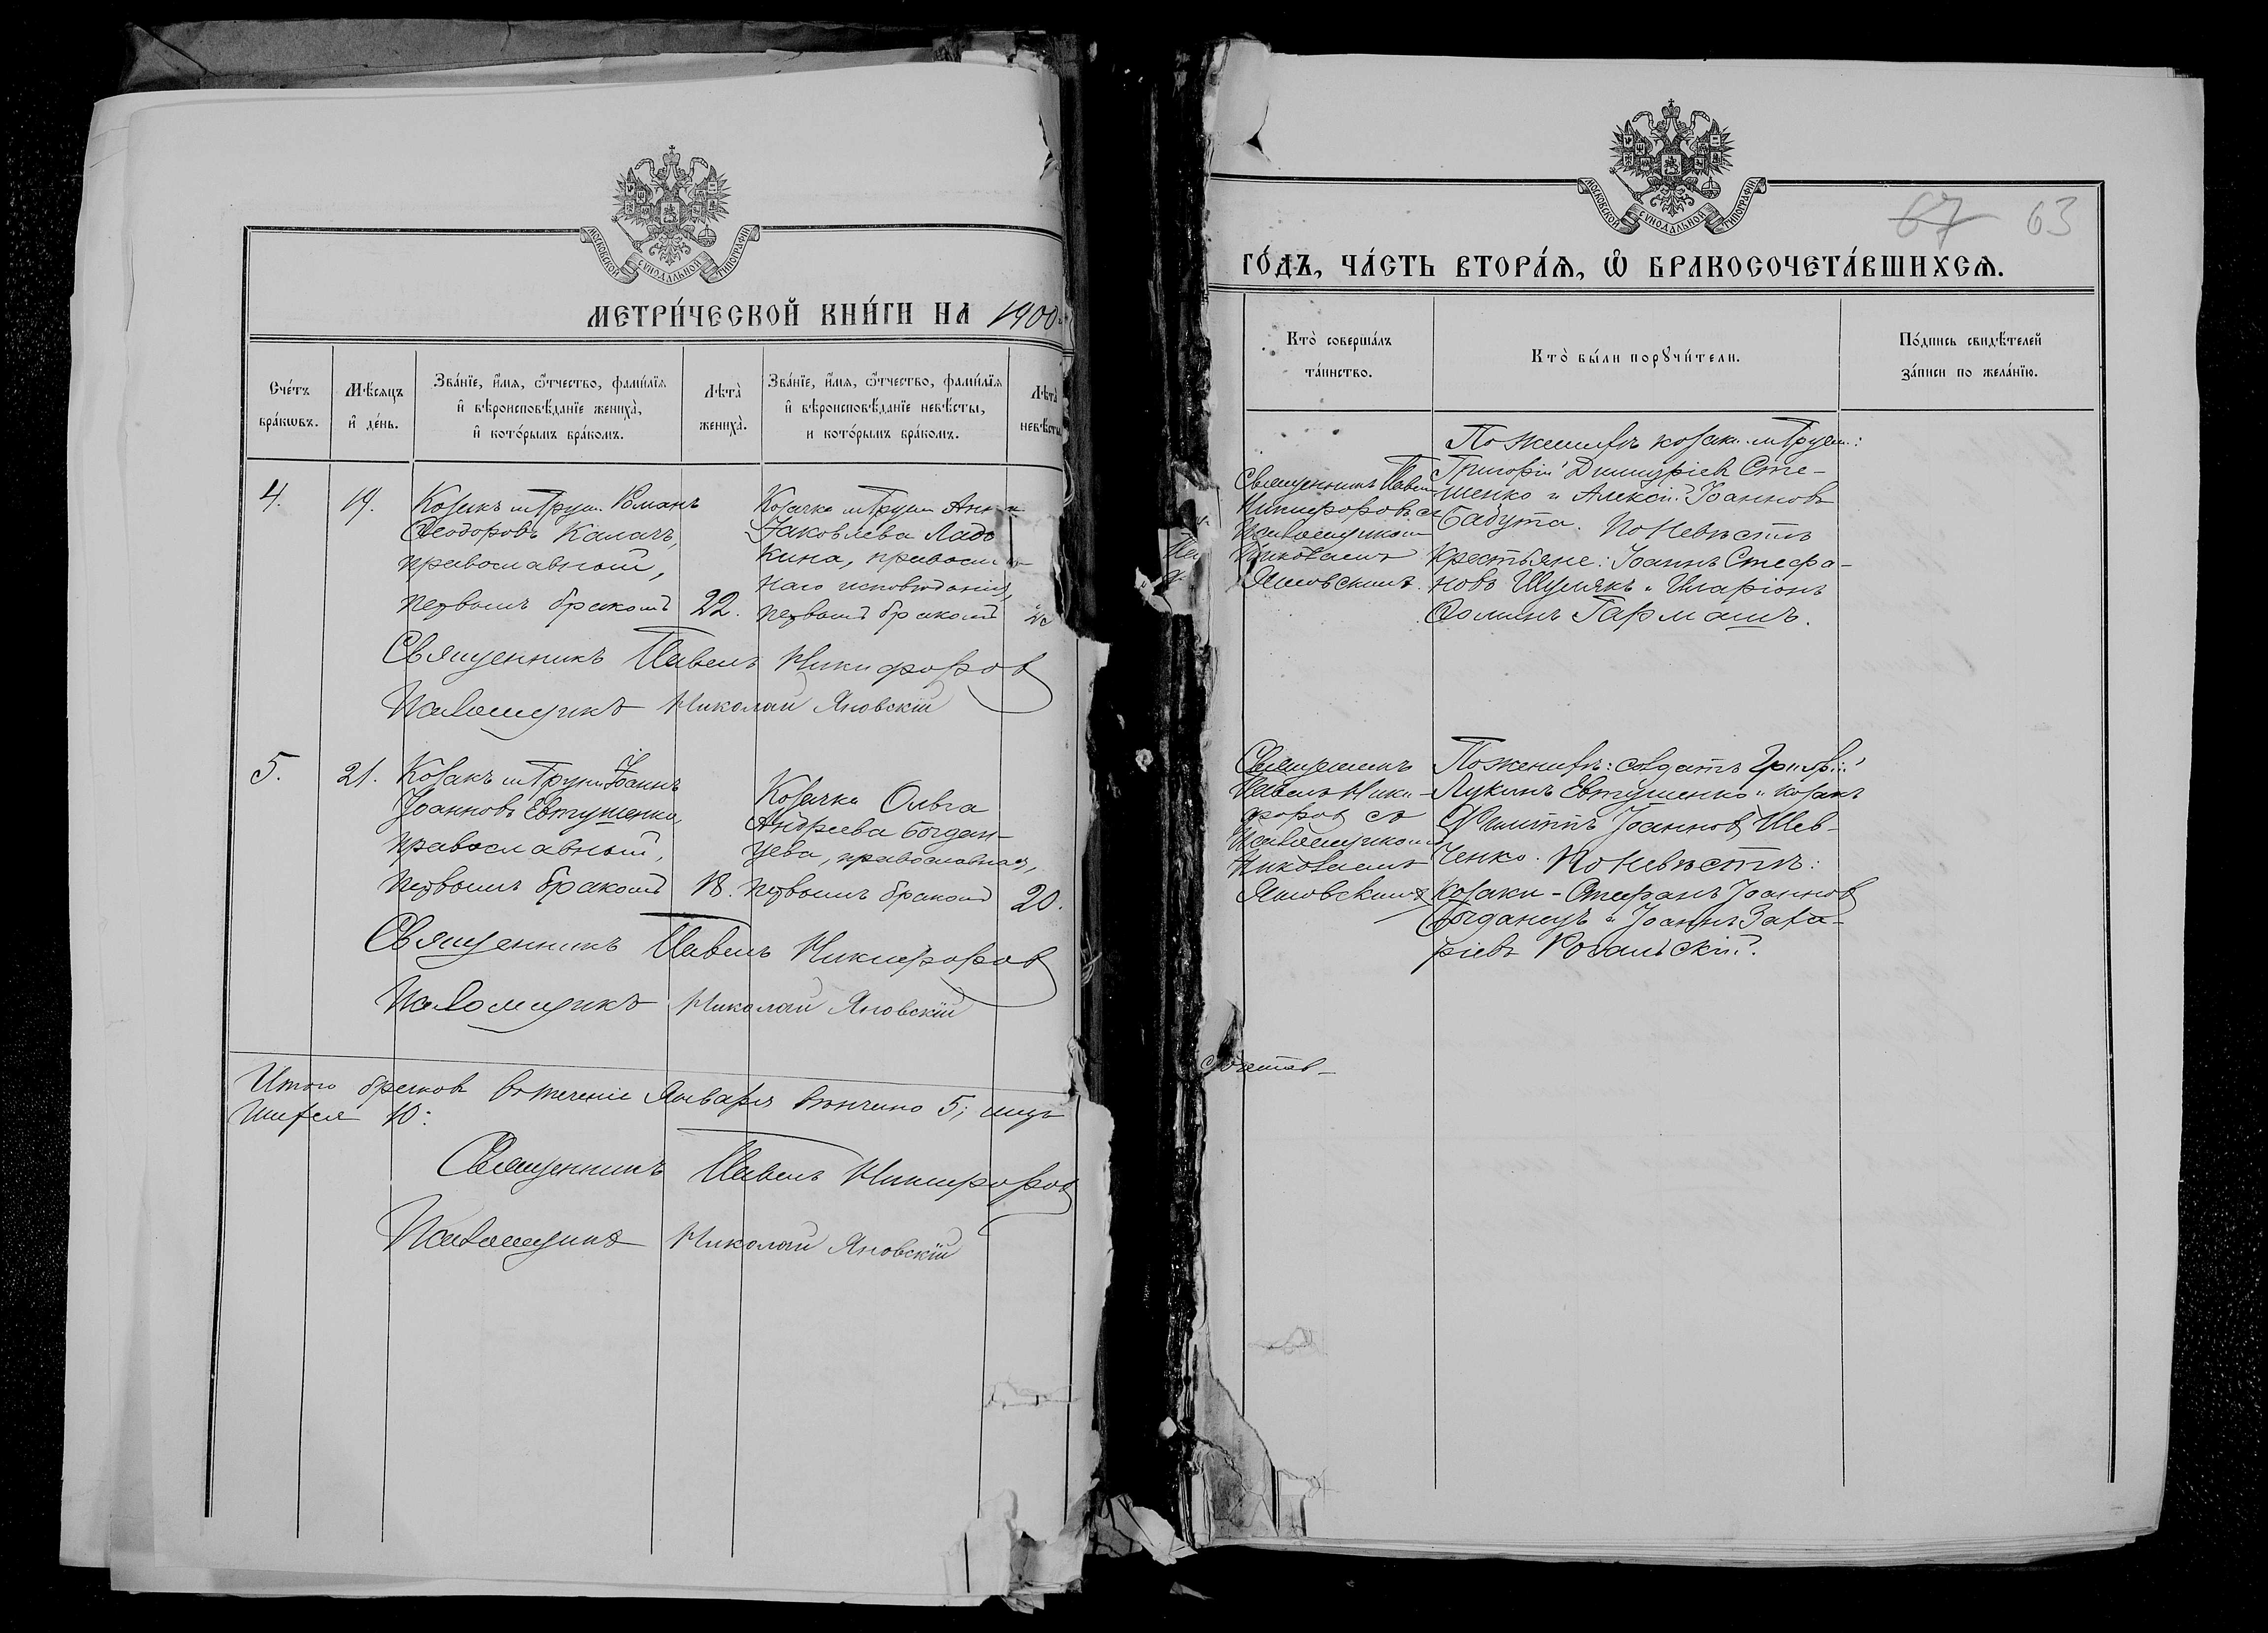 МОСКОВСКОЙ СѴНОДАЛЬНОЙ ТИПОГРАФІИ
МЕТРИ́ЧЕСКОЙ КНИ́ГИ НА 1900
Сче́тъ бра́кѡвъ.
Мѣ́сяцъ и҆ де́нь.
Зва́нїе, и҆́мѧ, ѻ҆́тчество, фами́лїѧ
и҆ вѣроисповѣ́данїе жениха̀,
и҆ кото́рымъ бра́комъ.
Лѣта̀ жениха̀.
Зва́нїе, и҆́мѧ, ѻ҆́тчество, фами́лїѧ
и҆ вѣроисповѣ́данїе невѣ́сты,
и кото́рымъ бра́комъ.
Лѣта̀ невѣ́сты
4.
19.
Козакъ м. Груни Романъ
Ѳеодоровъ Калачъ,
православный,
первымъ бракомъ
22.
Козачка м. Груни Анна
Іаковлева Ладо
кина, православ
наго исповѣданія,
первымъ бракомъ
Священникъ Павелъ Никифоров
Псаломщикъ Николай Яновскій
5.
21.
Козакъ м. Груни Іоаннъ
Іоанновъ Евтушенко,
православный,
первымъ бракомъ
18.
Козачка Ольга
Андреева Богдан-
цева, православная,
первымъ бракомъ
20.
Священникъ Павелъ Никифоров
Псаломщикъ Николай Яновскій
Итого браков въ теченіе Января вѣнчано 5; лицъ
шихся 10:
Священникъ Павелъ Никифоров
Псаломщикъ Николай Яновскій
МОСКОВСКОЙ СѴНОДАЛЬНОЙ ТИПОГРАФІИ
67 63
ГО́ДЪ, ЧА́СТЬ ВТОРА́Ѧ, Ѽ БРАКОСОЧЕТА́ВШИХСѦ.
Кто̀ соверша́лъ
та́инство.
Кто̀ бы́ли порꙋчи́тели.
По́дпись свидѣ́телей
за́писи по жела́нїю.
Священникъ Павелъ
Никифоровъ съ
Псаломщикомъ
Николаемъ
Яновскимъ.
По женихѣ козаки м. Груни:
Григорій Димитріевъ Сте-
шенко и Алексій Іоанновъ
Бабута. По невѣстѣ
крестьяне: Іоаннъ Стефа-
новъ Шулякъ и Иларіонъ
Ѳоминъ Гармашъ.
Священникъ
Павелъ Ники-
форов съ
Псаломщикомъ
Николаемъ
Яновскимъ
По женихѣ: солдатъ Григорій
Лукинъ Евтушенко и козакъ
Филиппъ Іоаннов Шев-
ченко. По невѣстѣ:
козаки - Стефанъ Іоаннов
Богданецъ и Іоаннъ Заха-
ріевъ Рогальскій.
сочетав-